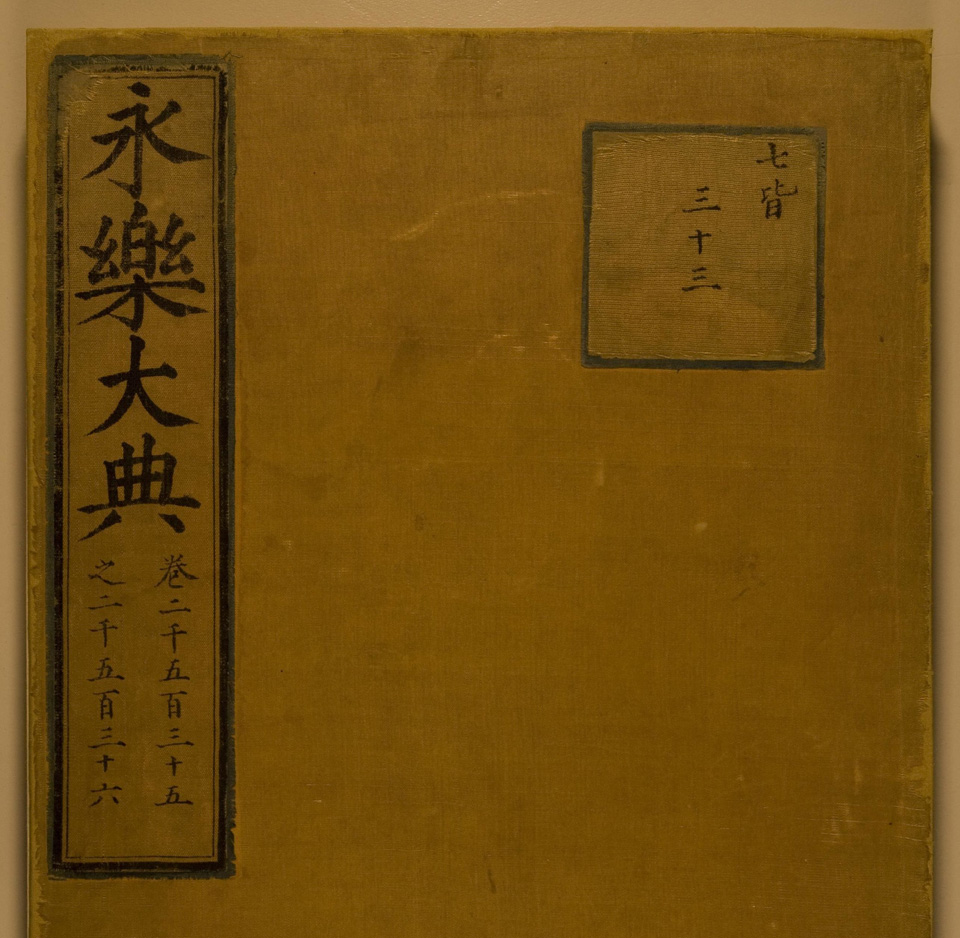 永樂大典
卷二千五百三十五
之二千五百三十六
七皆
三十三